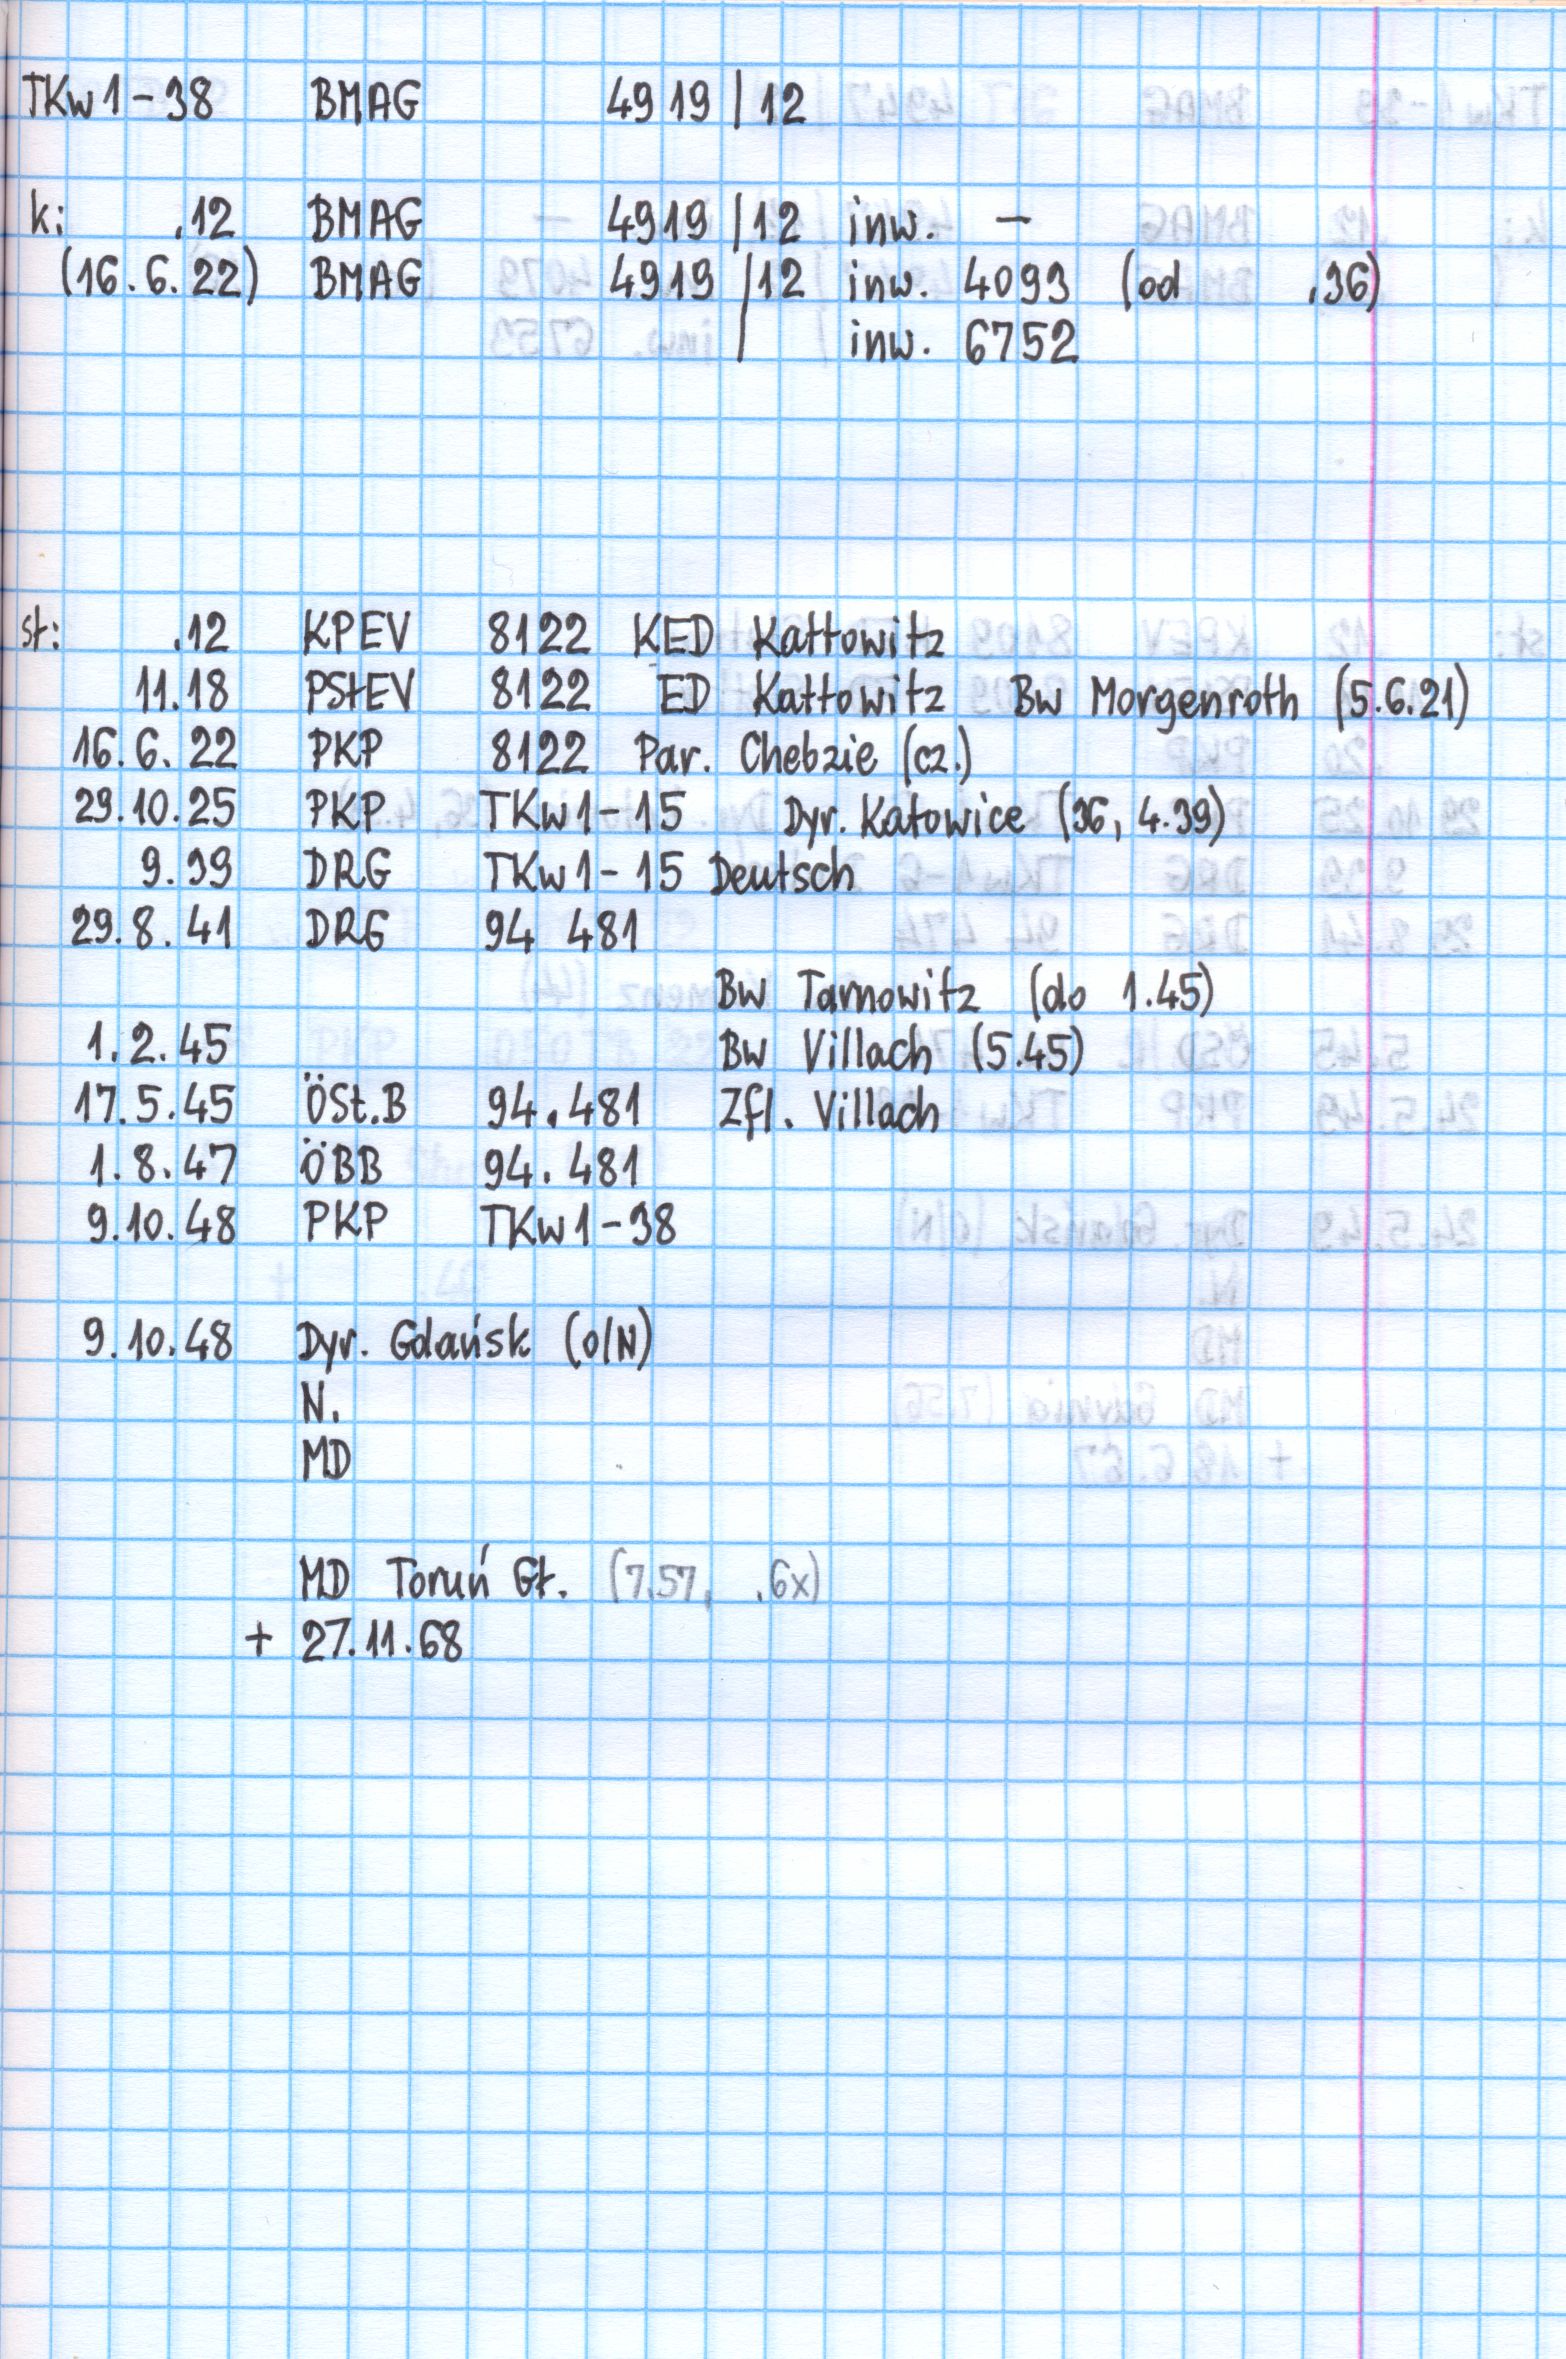 TKw1-38 BMAG 4919/12
k: .12 BMAG 4919/12 inw. -
(16.6.22) BMAG 4919/12 inw. 4093 (od .36)
/ inw. 6752
st: .12 KPEV 8122 KED Kattowitz
11.18 PStEV 8122 ED Kattowitz Bw Morgenroth (5.6.21)
16.6.22 PKP 8122 Par. Chebzie (cz.)
29.10.25 PKP TKw1-15 Dyr. Katowice (36, 4.39)
9.39 DRG TKw1-15 Deutsch
29.8.41 DRG 94 481
Bw Tarnowitz (do 1.45)
1.2.45 Bw Villach (5.45)
17.5.45 ÖSt.B 94.481 Zfl. Villach
1.8.47 ÖBB 94.481
9.10.48 PKP TKw1-38
9.10.48 Dyr. Gdańsk (o/N)
N.
MD
MD Toruń Gł. (7.57, .6x)
+ 27.11.68